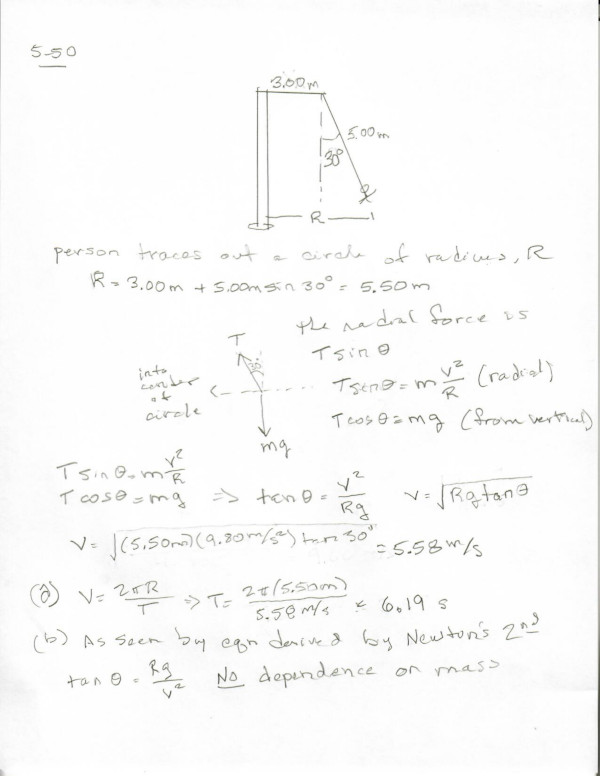 5-50
3.00m
5.00m
30°
R
person traces out a circle of radius, R
R = 3.00m + 5.00m sin 30° = 5.50m
the radial force is
T sin θ
T
30°
into
center
of
circle
mg
T sin θ = m v²/R (radial)
T cos θ = mg (from vertical)
T sin θ = m v²/R
T cos θ = mg ⇒ tan θ = v²/Rg   v = √(Rg tan θ)
V = √((5.50m)(9.80m/s²) tan 30°) = 5.58 m/s
(a) V = 2πR/T ⇒ T = 2π(5.50m)/5.58 m/s = 6.19 s
(b) As seen by eqn derived by Newton's 2nd
tan θ = Rg/v² No dependence on mass